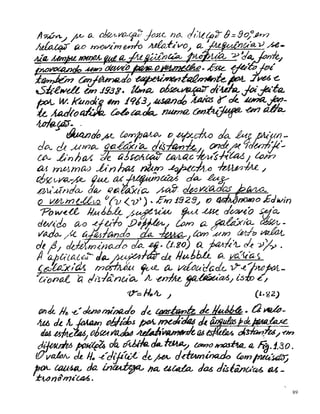 Assim, se a observação fosse na direção θ=90° em
relação ao movimento relativo, a frequência ν se-
ria sempre menor que a frequência própria ν' da fonte,
provocando um desvio para o vermelho. Esse efeito foi
também confirmado experimentalmente por Ives e
Stilwell em 1938. Uma observação direta foi feita
por W. Kundig em 1963, usando raios γ de uma fon-
te radioativa colocada numa centrífuga em alta
rotação.
Quando se compara o espectro da luz oriun-
da de uma galáxia distante, onde se identifi-
ca linhas de absorção características, com
as mesmas linhas num espectro terrestre,
observa-se que as frequências da luz
oriunda da galáxia são desviadas para
o vermelho (ν < ν'). Em 1929, o astrônomo Edwin
Powell Hubble sugeriu que esse desvio seja
devido ao efeito Döppler, com a galáxia obser-
vada se afastando da terra, com um certo valor
de β, determinado da eq. (1.80) a partir de ν/ν'.
A aplicação da sugestão de Hubble a várias
galáxias mostrou que a velocidade v é propor-
cional à distância r entre galáxias, isto é,
v = H₀ r , (1.82)
onde H₀ é denominado de constante de Hubble. Os valo-
res de r foram obtidos por medidas de ângulos de paralaxe
das estrelas, observadas relativamente às estrelas distantes, em
diferentes posições da órbita da terra, como mostra a Fig. 1.30.
O valor de H₀ é difícil de ser determinado com precisão,
por causa da incerteza na escala das distâncias as-
tronômicas.
89